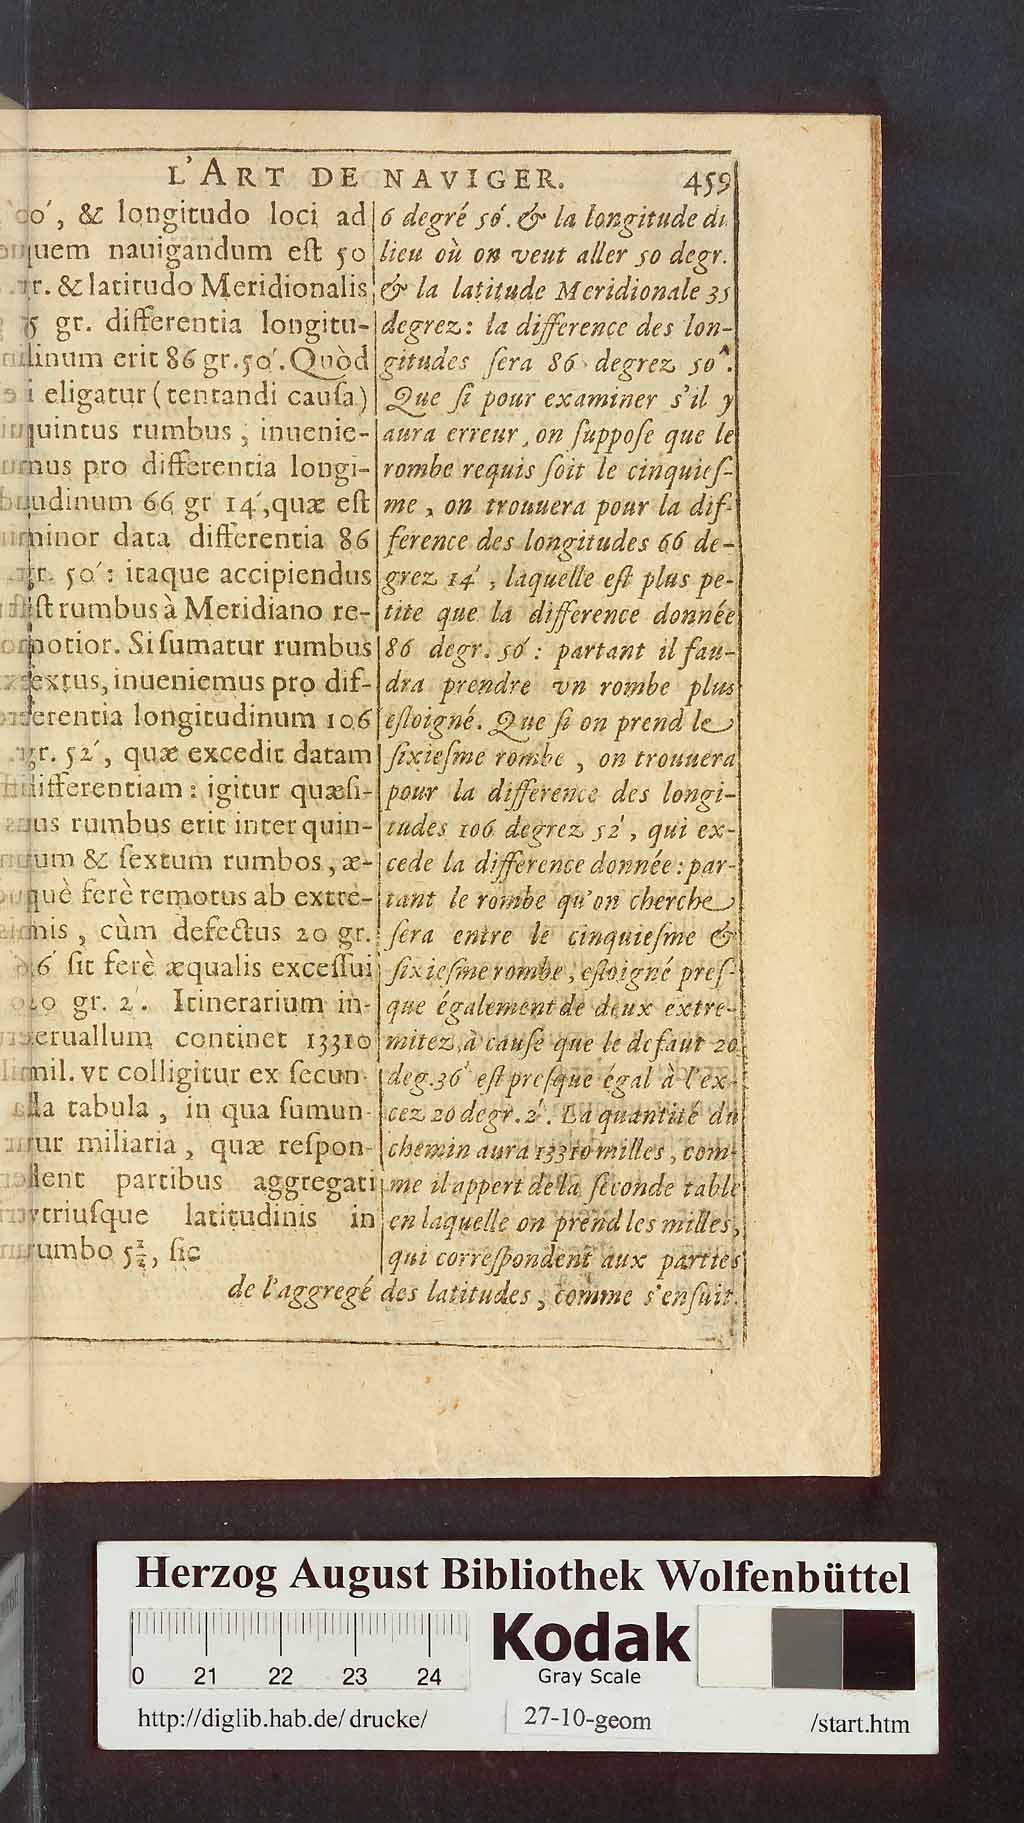 L'ART DE NAVIGER. 459
, & longitudo loci ad
quem nauigandum eſt 50
gr. & latitudo Meridionalis
gr. differentia longitu-
dinum erit 86 gr. 50′. Quòd
ſi eligatur (tentandi cauſa)
quintus rumbus, inuenie-
mus pro differentia longi-
tudinum 66 gr 14′, quæ eſt
minor data differentia 86
gr. 50′: itaque accipiendus
eſt rumbus à Meridiano re-
motior. Si ſumatur rumbus
ſextus, inueniemus pro dif-
ferentia longitudinum 106
gr. 52′, quæ excedit datam
differentiam: igitur quæſi-
tus rumbus erit inter quin-
tum & ſextum rumbos, æ-
què ferè remotus ab extre-
mis, cùm defectus 20 gr.
36′ ſit ferè æqualis exceſſui
20 gr. 2′. Itinerarium in-
teruallum continet 13310
mil. vt colligitur ex ſecun-
da tabula, in qua ſumun-
tur miliaria, quæ reſpon-
dent partibus aggregati
vtriuſque latitudinis in
rumbo 5½, ſic
6 degré 50′. & la longitude du
lieu où on veut aller 50 degr.
& la latitude Meridionale 35
degrez: la difference des lon-
gitudes ſera 86 degrez 50′.
Que ſi pour examiner s'il y
aura erreur, on ſuppoſe que le
rombe requis ſoit le cinquieſ-
me, on trouuera pour la dif-
ference des longitudes 66 de-
grez 14′, laquelle eſt plus pe-
tite que la difference donnée
86 degr. 50′: partant il fau-
dra prendre vn rombe plus
eſloigné. Que ſi on prend le
ſixieſme rombe, on trouuera
pour la difference des longi-
tudes 106 degrez 52′, qui ex-
cede la difference donnée: par-
tant le rombe qu'on cherche
ſera entre le cinquieſme &
ſixieſme rombe, eſloigné preſ-
que également de deux extre-
mitez, à cauſe que le defaut 20
deg. 36′ eſt preſque égal à l'ex-
cez 20 degr. 2′. La quantité du
chemin aura 13310 milles, com-
me il appert de la ſeconde table
en laquelle on prend les milles,
qui correſpondent aux parties
de l'aggregé des latitudes, comme s'enſuit.
Herzog August Bibliothek Wolfenbüttel
0 21 22 23 24
Kodak
Gray Scale
http://diglib.hab.de/drucke/ 27-10-geom /start.htm